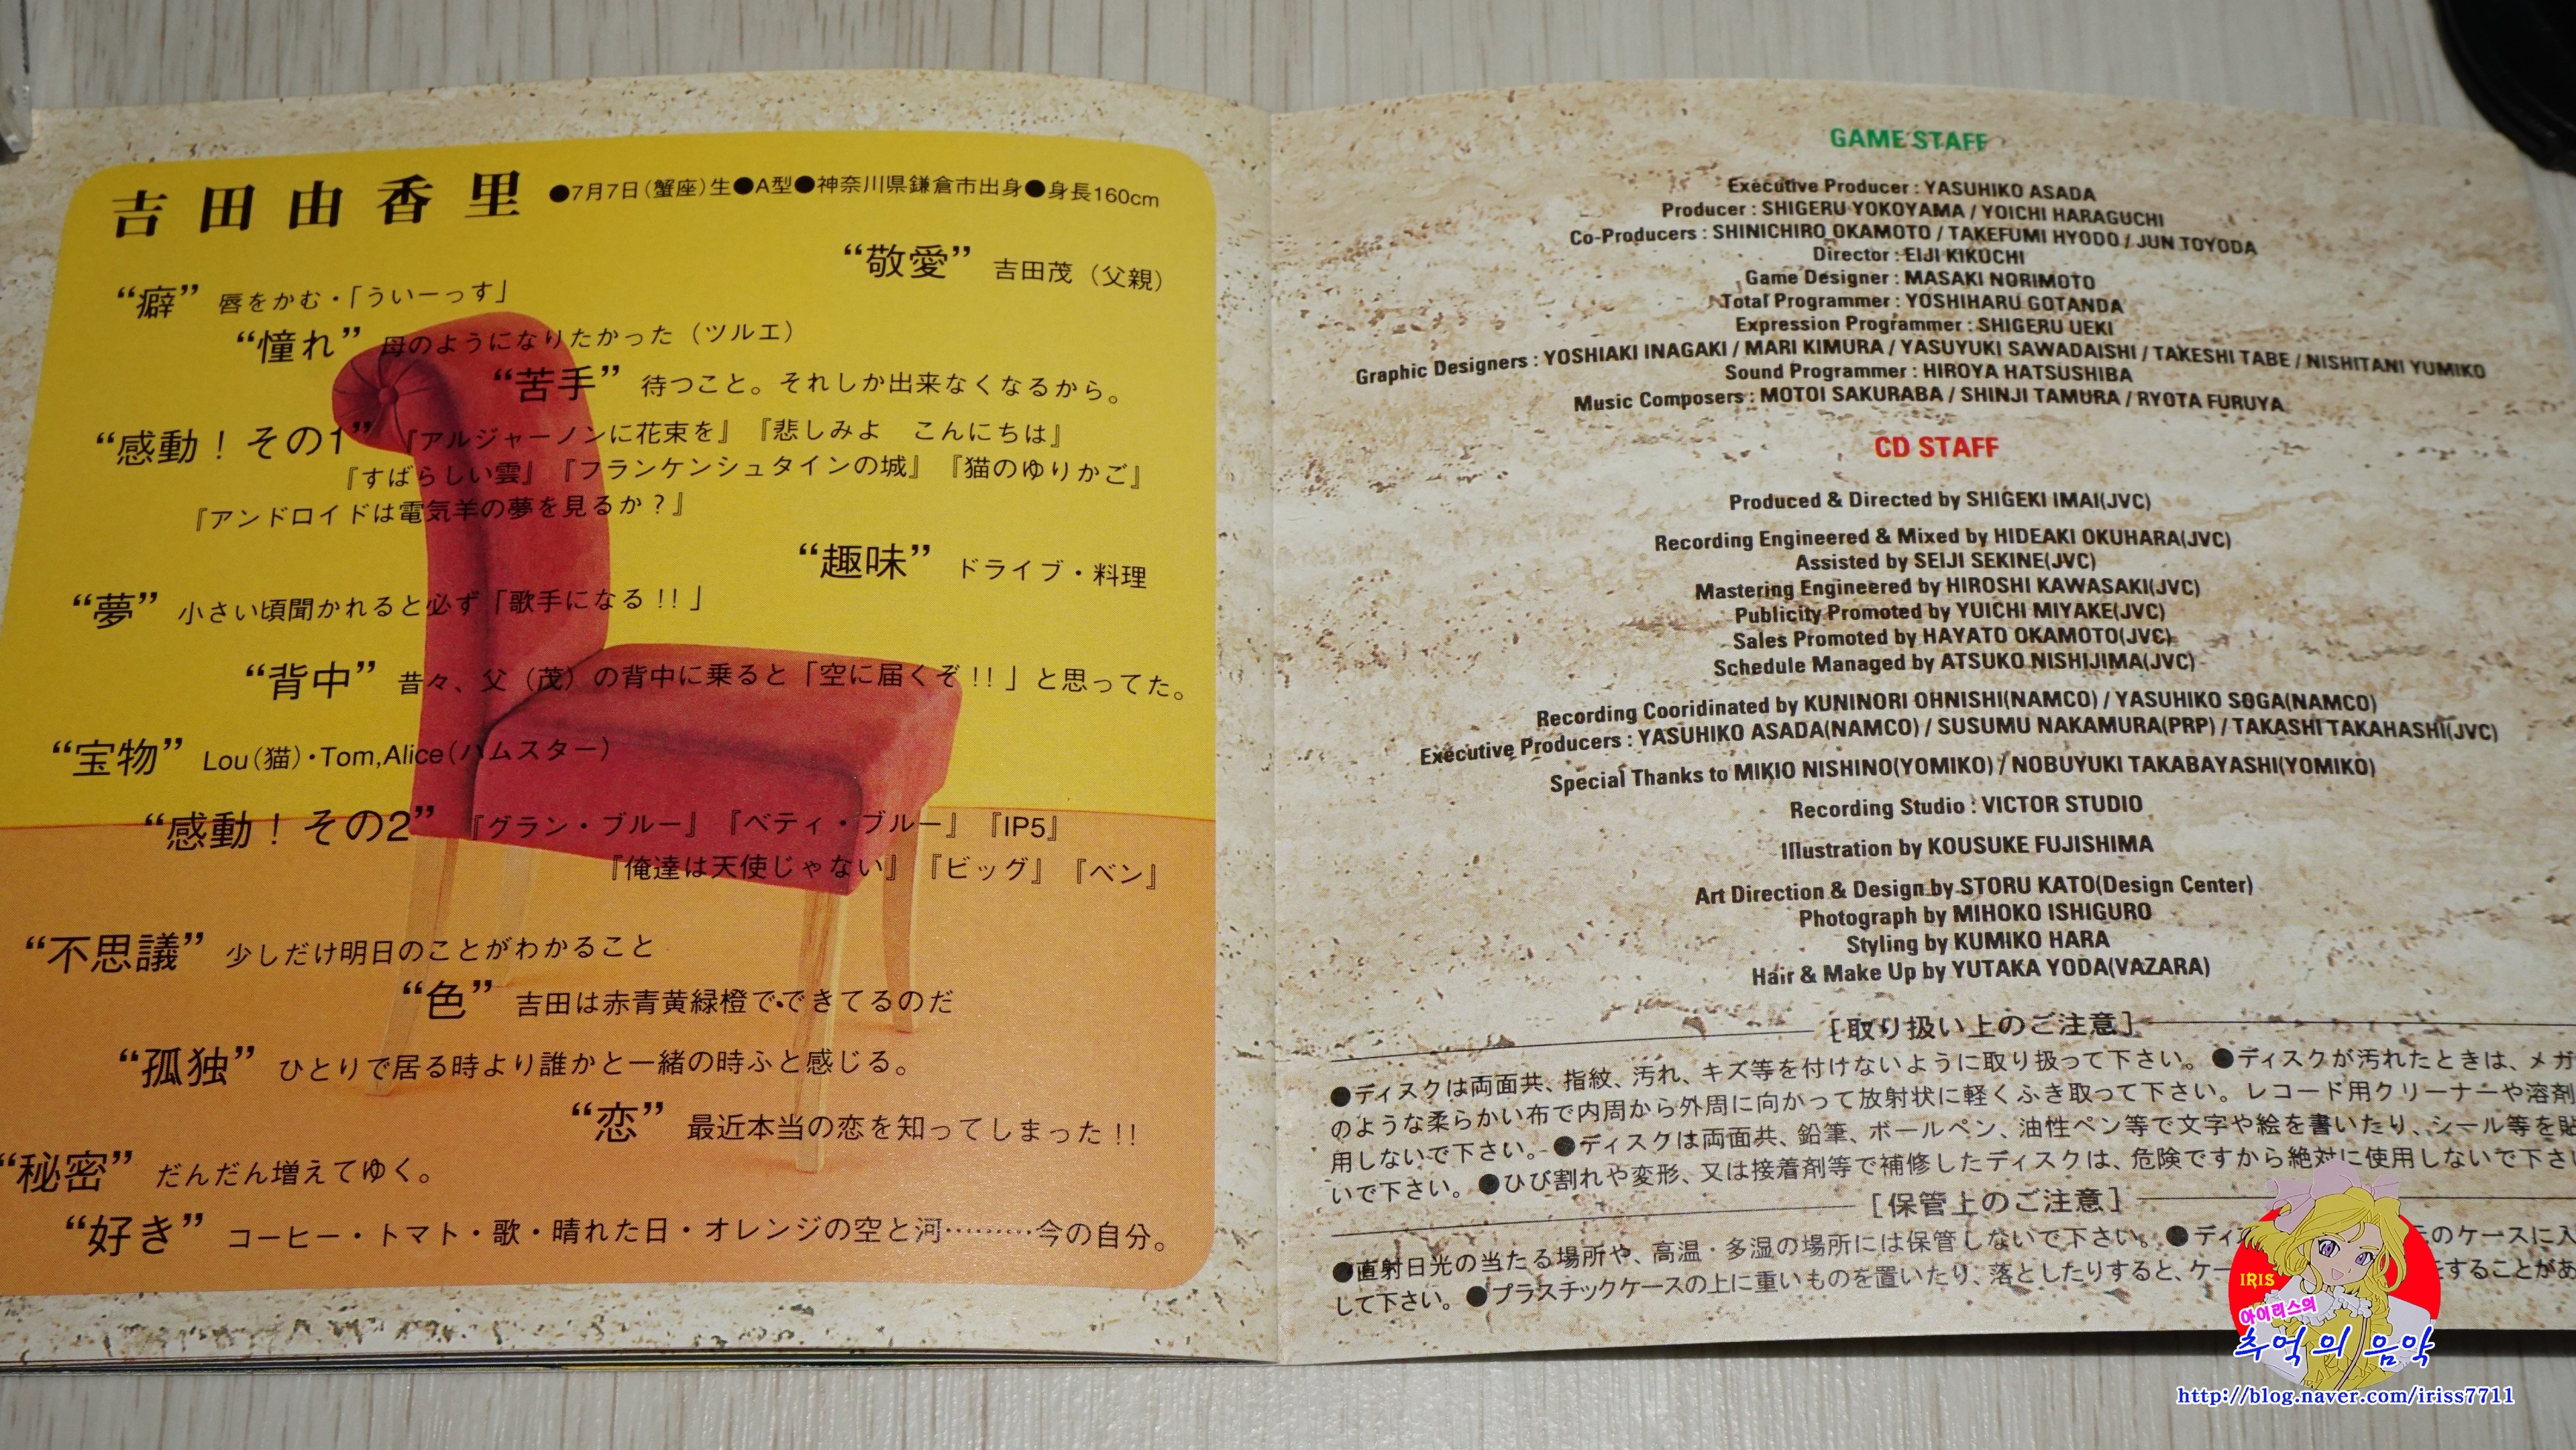 吉田由香里 ●7月7日(蟹座)生●A型●神奈川県鎌倉市出身●身長160cm
“敬愛” 吉田茂（父親）
“癖” 唇をかむ・「ういーっす」
“憧れ” 母のようになりたかった（ツルエ）
“苦手” 待つこと。それしか出来なくなるから。
“感動！その1” 『アルジャーノンに花束を』『悲しみよ　こんにちは』
『すばらしい雲』『フランケンシュタインの城』『猫のゆりかご』
『アンドロイドは電気羊の夢を見るか？』
“趣味” ドライブ・料理
“夢” 小さい頃聞かれると必ず「歌手になる!!」
“背中” 昔々、父（茂）の背中に乗ると「空に届くぞ!!」と思ってた。
“宝物” Lou(猫)・Tom,Alice(ハムスター)
“感動！その2” 『グラン・ブルー』『ベティ・ブルー』『IP5』
『俺達は天使じゃない』『ビッグ』『ベン』
“不思議” 少しだけ明日のことがわかること
“色” 吉田は赤青黄緑橙でできてるのだ
“孤独” ひとりで居る時より誰かと一緒の時ふと感じる。
“恋” 最近本当の恋を知ってしまった!!
“秘密” だんだん増えてゆく。
“好き” コーヒー・トマト・歌・晴れた日・オレンジの空と河………今の自分。
GAME STAFF
Executive Producer : YASUHIKO ASADA
Producer : SHIGERU YOKOYAMA / YOICHI HARAGUCHI
Co-Producers : SHINICHIRO OKAMOTO / TAKEFUMI HYODO / JUN TOYODA
Director : EIJI KIKUCHI
Game Designer : MASAKI NORIMOTO
Total Programmer : YOSHIHARU GOTANDA
Expression Programmer : SHIGERU UEKI
Graphic Designers : YOSHIAKI INAGAKI / MARI KIMURA / YASUYUKI SAWADAISHI / TAKESHI TABE / NISHITANI YUMIKO
Sound Programmer : HIROYA HATSUSHIBA
Music Composers : MOTOI SAKURABA / SHINJI TAMURA / RYOTA FURUYA
CD STAFF
Produced & Directed by SHIGEKI IMAI(JVC)
Recording Engineered & Mixed by HIDEAKI OKUHARA(JVC)
Assisted by SEIJI SEKINE(JVC)
Mastering Engineered by HIROSHI KAWASAKI(JVC)
Publicity Promoted by YUICHI MIYAKE(JVC)
Sales Promoted by HAYATO OKAMOTO(JVC)
Schedule Managed by ATSUKO NISHIJIMA(JVC)
Recording Cooridinated by KUNINORI OHNISHI(NAMCO) / YASUHIKO SOGA(NAMCO)
Executive Producers : YASUHIKO ASADA(NAMCO) / SUSUMU NAKAMURA(PRP) / TAKASHI TAKAHASHI(JVC)
Special Thanks to MIKIO NISHINO(YOMIKO) / NOBUYUKI TAKABAYASHI(YOMIKO)
Recording Studio : VICTOR STUDIO
Illustration by KOUSUKE FUJISHIMA
Art Direction & Design by STORU KATO(Design Center)
Photograph by MIHOKO ISHIGURO
Styling by KUMIKO HARA
Hair & Make Up by YUTAKA YODA(VAZARA)
[取り扱い上のご注意]
●ディスクは両面共、指紋、汚れ、キズ等を付けないように取り扱って下さい。●ディスクが汚れたときは、メガ
のような柔らかい布で内周から外周に向かって放射状に軽くふき取って下さい。レコード用クリーナーや溶剤
用しないで下さい。●ディスクは両面共、鉛筆、ボールペン、油性ペン等で文字や絵を書いたり、シール等を貼
いで下さい。●ひび割れや変形、又は接着剤等で補修したディスクは、危険ですから絶対に使用しないで下さい
[保管上のご注意]
●直射日光の当たる場所や、高温・多湿の場所には保管しないで下さい。●ディス のケースに入
して下さい。●プラスチックケースの上に重いものを置いたり、落としたりすると、ケー をすることがあ
IRIS
아이리스의
추억의 음악
http://blog.naver.com/iriss7711